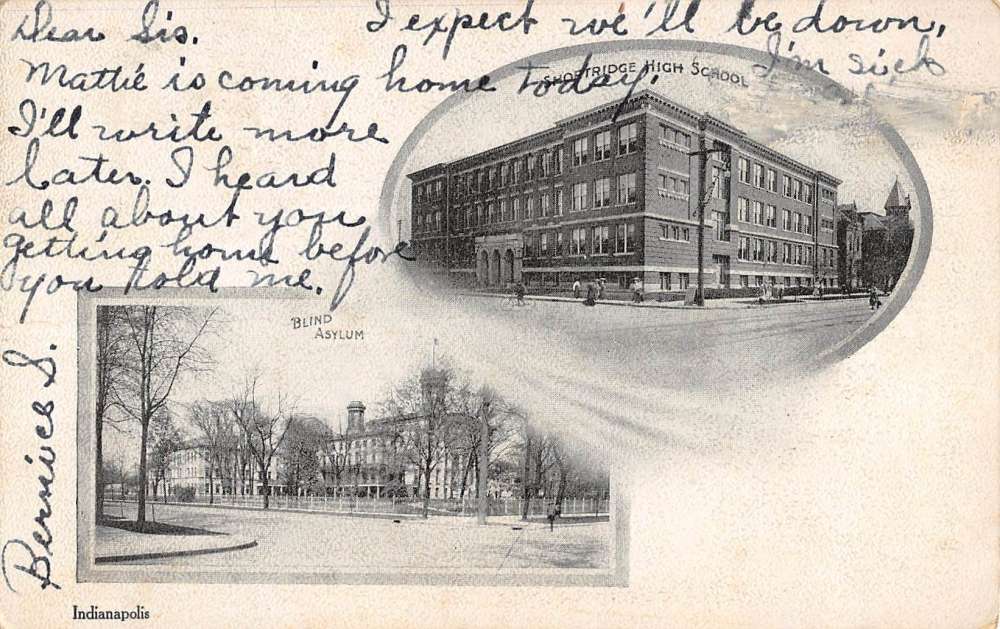 Dear Sis.
I expect we'll be down.
I'm sick
Mattie is coming home today.
I'll write more
later. I heard
all about you
getting home before
you told me.
Bernice S.
SHORTRIDGE HIGH SCHOOL
BLIND
ASYLUM
Indianapolis